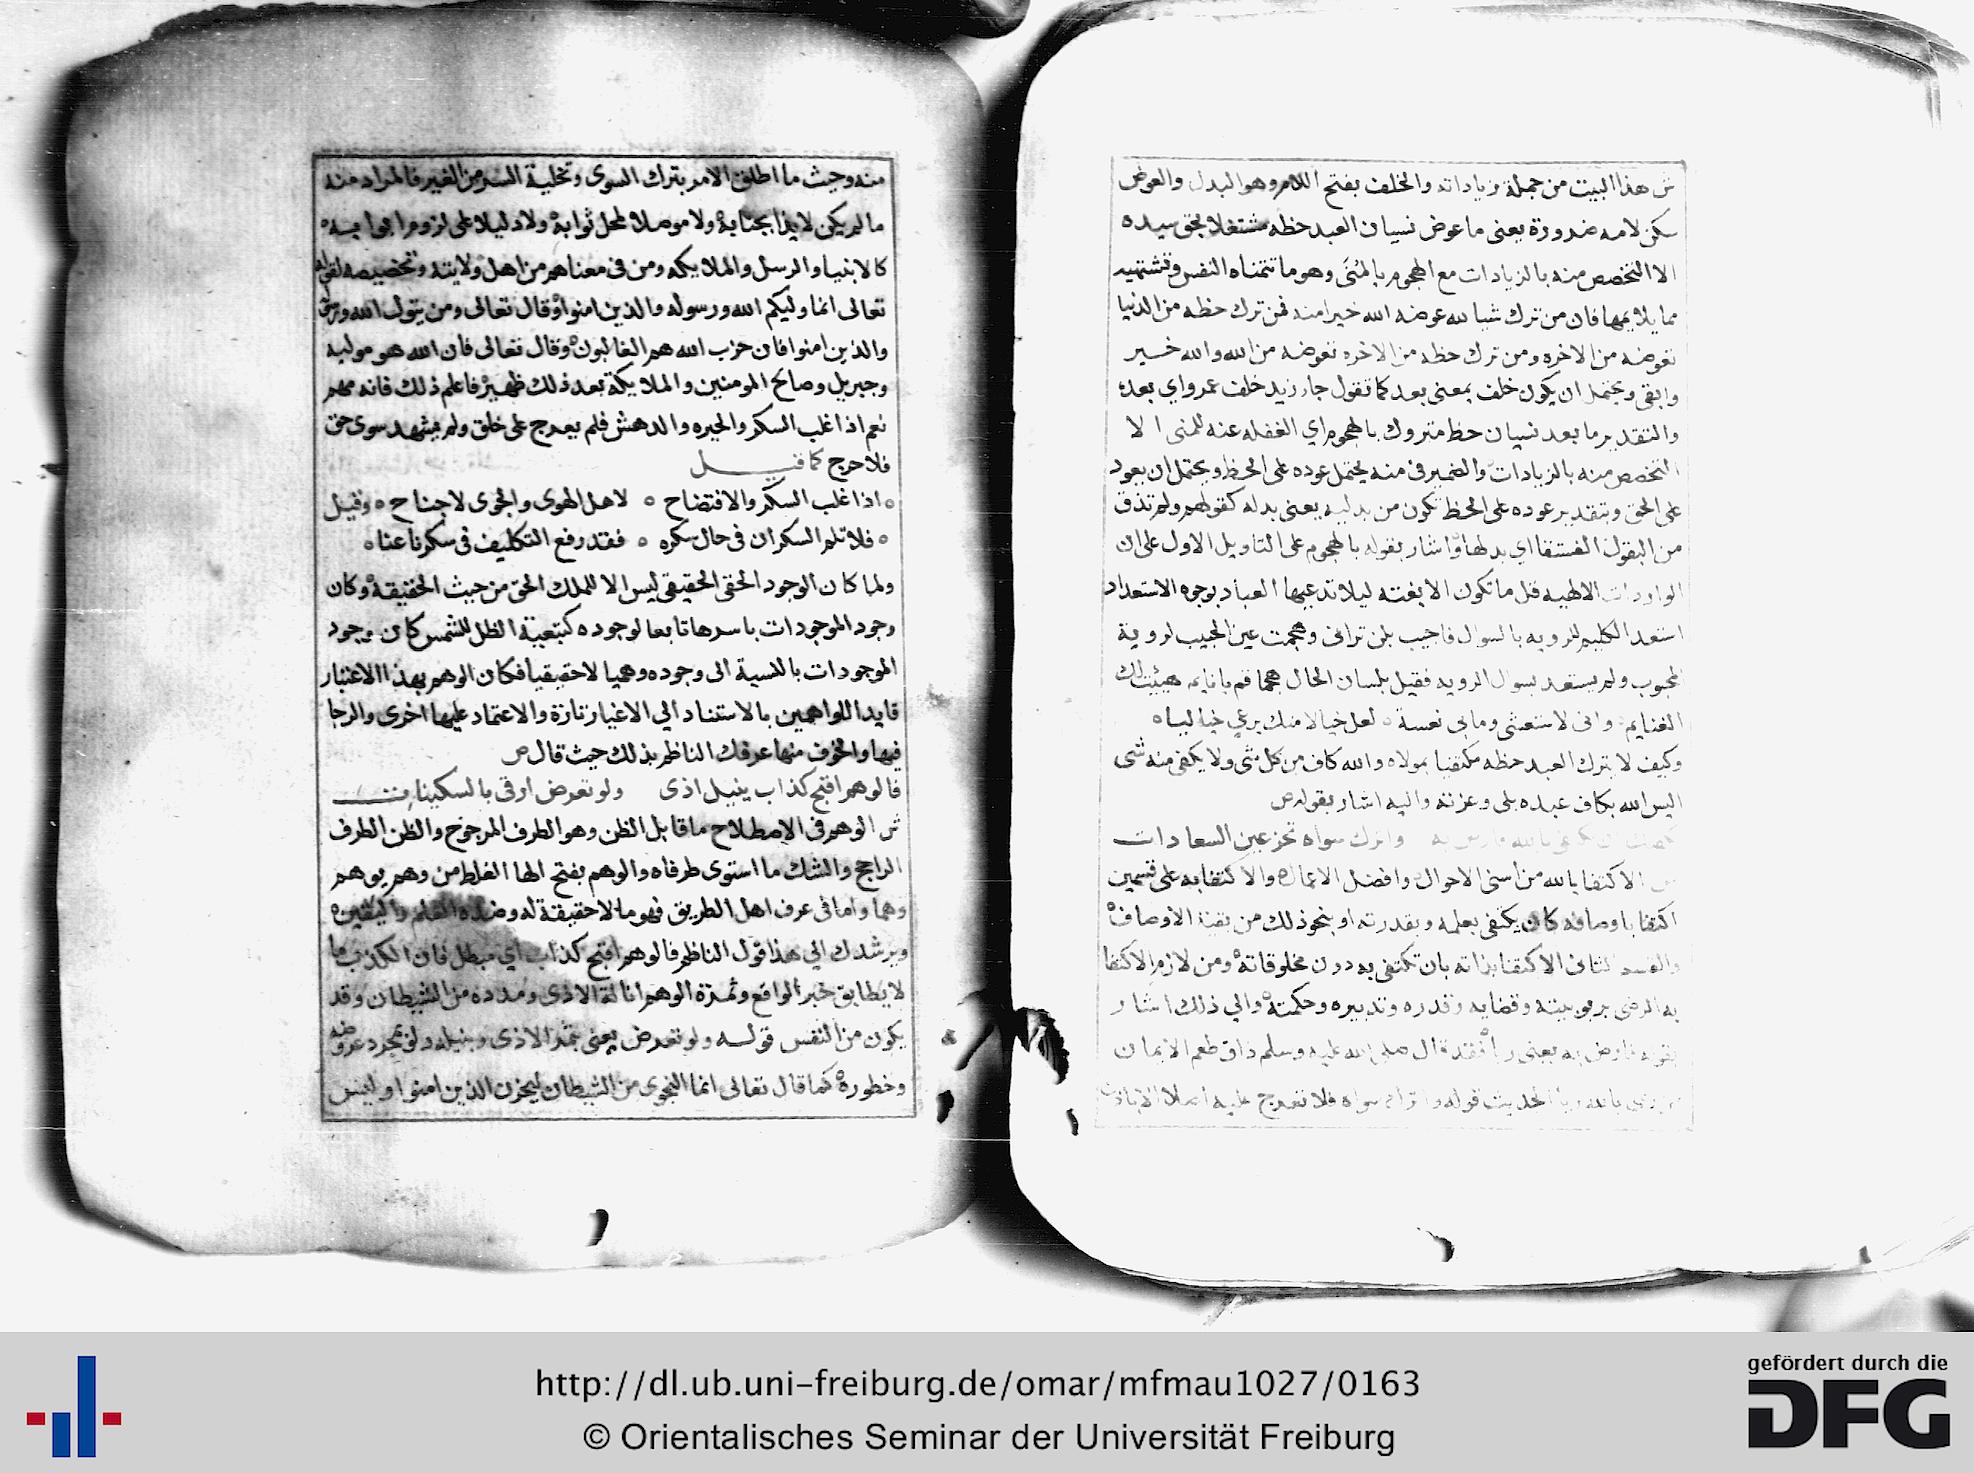 ش هذا البيت من جملة زياداته والخلف بفتح اللام وهو البدل والعوض
سكن لامه ضرورة يعنى ما عوض نسيان العبد حظه مشتغلا بحق سيده
الا التخصص منه بالزيادات مع الهجوم بالمُنَى وهو ما تتمناه النفس وتشتهيه
مما يلايمها فان من ترك شيا لله عوضه الله خيرا منه فمن ترك حظه من الدنيا
تعوضه من الاخره ومن ترك حظه من الاخره تعوضه من الله والله خير
وابقى ويحتمل ان يكون خلف بمعنى بعد كما تقول جا زيد خلف عمرو اي بعده
والتقدير ما بعد نسيان حظ متروك بالهجوم اي الغفله عنه للمنى الا
التخصص منه بالزيادات والضمير فى منه يحتمل عوده على الحظ ويحتمل ان يعود
على الحق وبتقدير عوده على الحظ تكون من بدليه يعنى بدله كقولهم ولم تذق
من البقول الفستقا اي بدلها واشار بقوله بالهجوم على التاويل الاول على ان
الواردات الالهيه قل ما تكون الا بغته ليلا تدعيها العباد بوجوه الاستعداد
استعد الكليم للرويه بالسوال فاجيب بلن ترانى وهجمت عين الحبيب لروية
المحبوب ولم يستعد بسوال الرويه فقيل بلسان الحال
الغنايم وانى لاستغشى وما بى نعسة لعل خيالا منك
وكيف لا يترك العبد حظه مكتفيا بمولاه والله كاف من كل شى ولا يكفى منه شى
اليس الله بكاف عبده بلى وعزته واليه اشار بقوله ص
واترك سواه تحز عين السعادات
الاكتفا بالله من اسنى الاحوال وافضل الاعمال والاكتفا به على قسمين
اكتفا باوصافه كان يكتفى بعلمه وبقدرته او بنحو ذلك من بقية الاوصاف
والقسم الثانى الاكتفا بذاته بان تكتفى به دون مخلوقاته ومن لازم الاكتفا
به الرضى بربوبيته وقضايه وقدره وتدبيره وحكمته والي ذلك اشار
بقوله فارض به يعنى ربا فقد قال صلى الله عليه وسلم ذاق طعم الايمان
من رضى بالله ربا الحديث قوله واترك سواه فلا تعرج عليه اصلا
منه وحيث ما اطلق الامر بترك السوى وتخلية السر من الغير فالمراد منه
ما لم يكن لايذا بجنابه ولا موصلا لمحل ثوابه ولا دليلا على لزوم
كالانبيا والرسل والملايكه ومن فى معناهم من اهل ولايته وتخصيصه لقوله
تعالى انما وليكم الله ورسوله والذين امنوا وقال تعالى ومن يتول الله ورسوله
والذين امنوا فان حزب الله هم الغالبون وقال تعالى فان الله هو موليه
وجبريل وصالح المومنين والملايكة بعد ذلك ظهير فاعلم ذلك فانه مهم
نعم اذا غلب السكر والحيره والدهش فلم يعرج على خلق ولم يشهد سوى حق
فلا حرج كما قيل
اذا غلب السكر والافتضاح ه لاهل الهوى والجوى لا جناح ه وقيل
ه فلا تلم السكران فى حال سكره ه فقد رفع التكليف فى سكرنا عنا ه
ولما كان الوجود الحقى الحقيقى ليس الا للملك الحق من حيث الحقيقة وكان
وجود الموجودات باسرها تابعا لوجوده كتبعية الظل للشمس كان وجود
الموجودات بالنسبة الى وجوده وهميا لا حقيقيا فكان الوهم بهذا الاعتبار
قايدا للواهمين بالاستناد الي الاغيار تارة والاعتماد عليها اخرى والرجا
فيها والخوف منها عرفك الناظم بذلك حيث قال ص
فالوهم اقبح كذاب ينيل اذى ولو تعرض ارقى بالسكينات
ش الوهم فى الاصطلاح ما قابل الظن وهو الطرف المرجوح والظن الطرف
الراجح والشك ما استوى طرفاه والوهم بفتح الها الغلط من وهم يوهم
وهما واما فى عرف اهل الطريق فهو ما لا حقيقة له وضده العلم واليقين ه
ويرشدك الي هذا قول الناظم فالوهم اقبح كذاب اي مبطل فان الكذب ما
لا يطابق خبر الواقع وثمرة الوهم انالة الاذى ومدده من الشيطان وقد
يكون من النفس قوله ولو تعرض يعنى يثمر الاذى وينيله ولو بمجرد عروضه
وخطوره كما قال تعالى انما النجوى من الشيطان ليحزن الذين امنوا وليس
http://dl.ub.uni-freiburg.de/omar/mfmau1027/0163
© Orientalisches Seminar der Universität Freiburg
gefördert durch die
DFG